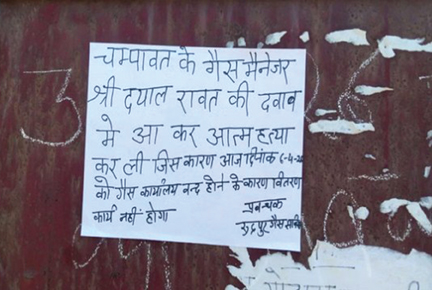 चम्पावत के गैस मैनेजर
श्री दयाल रावत की दवाब
मे आ कर आत्महत्या
कर ली जिस कारण आज दिनांक 6-4-20
को गैस कार्यालय बन्द होने के कारण वितरण
कार्य नही होगा
प्रबन्धक
रुद्रपुर गैस
3